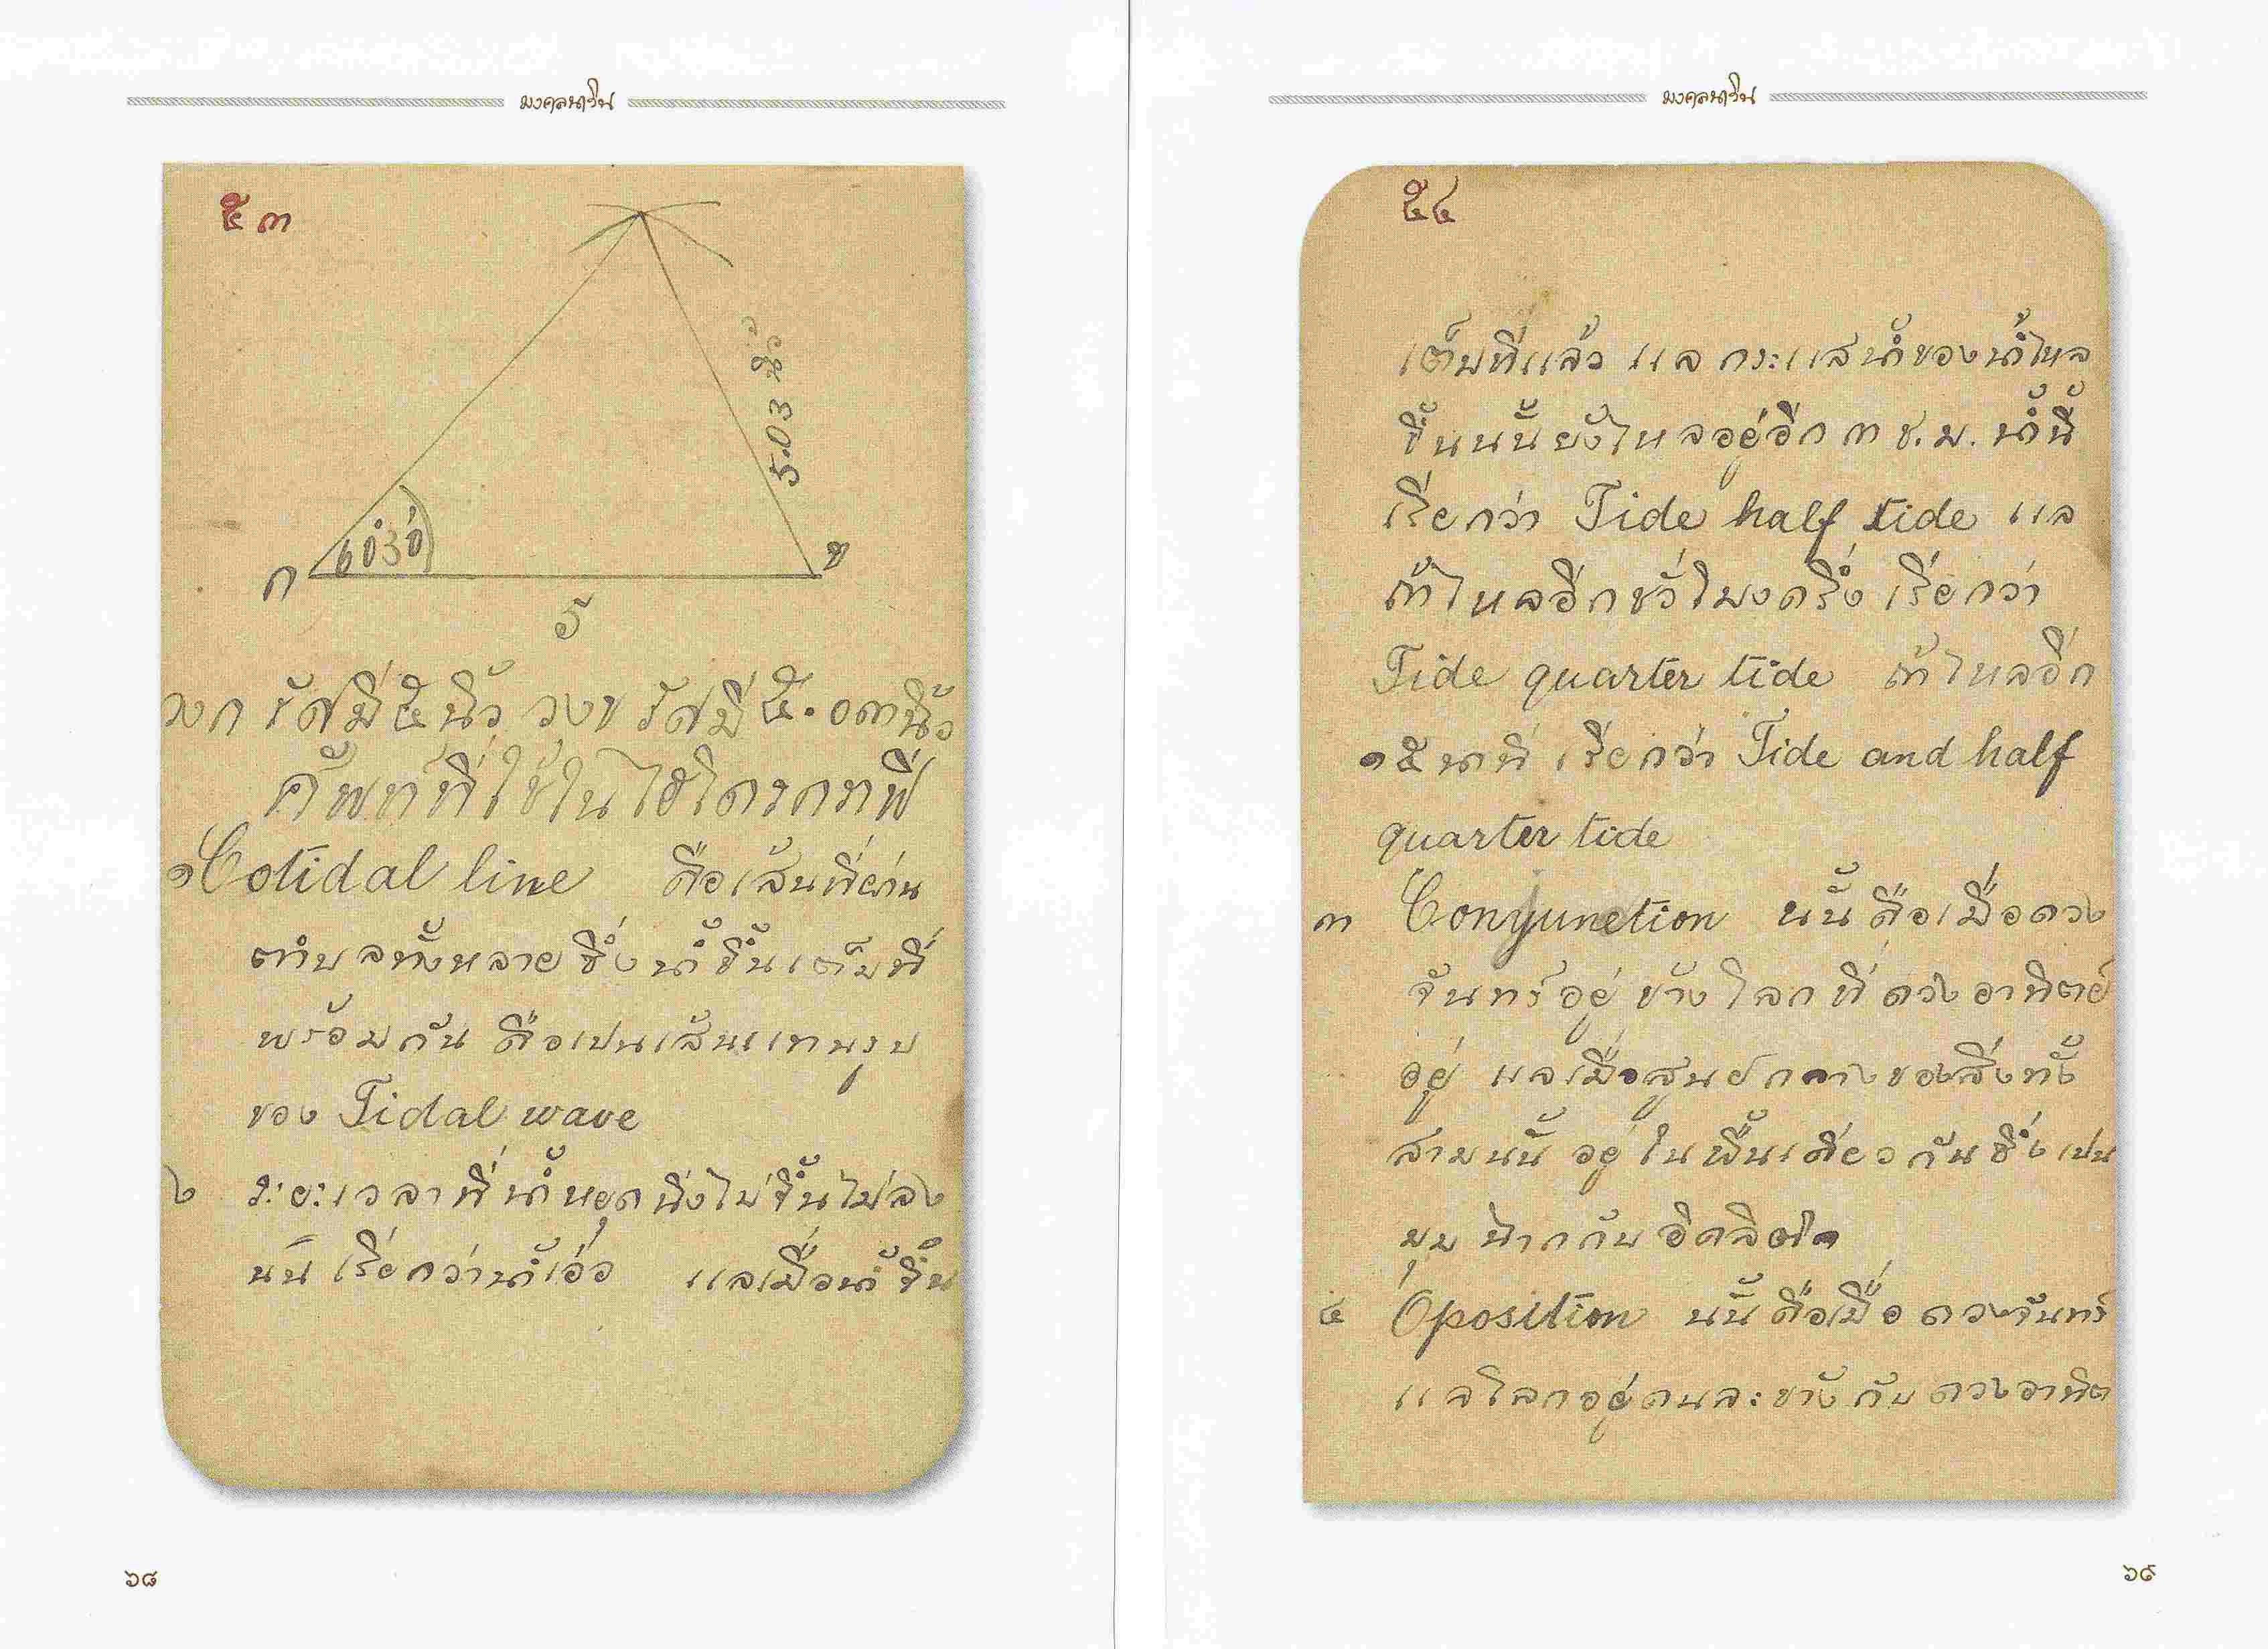 มงคลนาวิน
๕๓
5.03 นิ้ว
60°30'
ก
ข
5
วงก รัศมี ๕ นิ้ว วงข รัศมี ๕.๐๓ นิ้ว
ศัพท์ที่ใช้ในไฮโดรกราฟี
๑ Cotidal line คือเส้นที่ผ่าน
ตำบลทั้งหลายซึ่งน้ำขึ้นเต็มที่
พร้อมกัน คือเปนเส้นแทนรูป
ของ Tidal wave
๒ ระยะเวลาที่น้ำหยุดนิ่งไม่ขึ้นไม่ลง
นั้น เรียกว่าน้ำเอ่อ แลเมื่อน้ำขึ้น
๖๘
มงคลนาวิน
๕๔
เต็มที่แล้ว แล กระแสน้ำของน้ำไหล
ขึ้นนั้นยังไหลอยู่อีก ๓ ช.ม. น้ำนี้
เรียกว่า Tide half tide แล
ถ้าไหลอีกชั่วโมงครึ่ง เรียกว่า
Tide quarter tide ถ้าไหลอีก
๑๕ นาที เรียกว่า Tide and half
quarter tide
๓ Conjunction นั้นคือเมื่อดวง
จันทร์อยู่ข้างโลกที่ดวงอาทิตย์
อยู่ แลเมื่อสูนย์กลางของสิ่งทั้ง
สามนั้น อยู่ในพื้นเดียวกันซึ่งเปน
มุมฉากกับอิคลิตติก
๔ Oposition นั้นคือเมื่อ ดวงจันทร์
แลโลกอยู่คนละข้างกับดวงอาทิต
๖๙